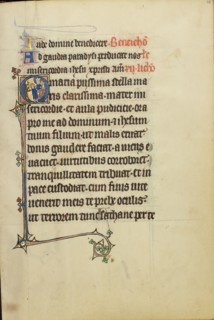 Iube domne benedicere. Benedictio
Ad gaudia paradysi perducat nos
misericordia ihesu xpristi amen.
O maria piissima stella ma
ris clarissima. mater mi
sericordie et aula pudicicie ora
pro me ad dominum et ihesum
tuum filium. ut malis eruat
bonis gaudere faciat. a viciis e
vacuet. virtutibus corroboret.
tranquillitatem tribuat. et in
pace custodiat. cum finis vite
venerit meis te prebe oculis.
ut terrorem tunc sathane per te